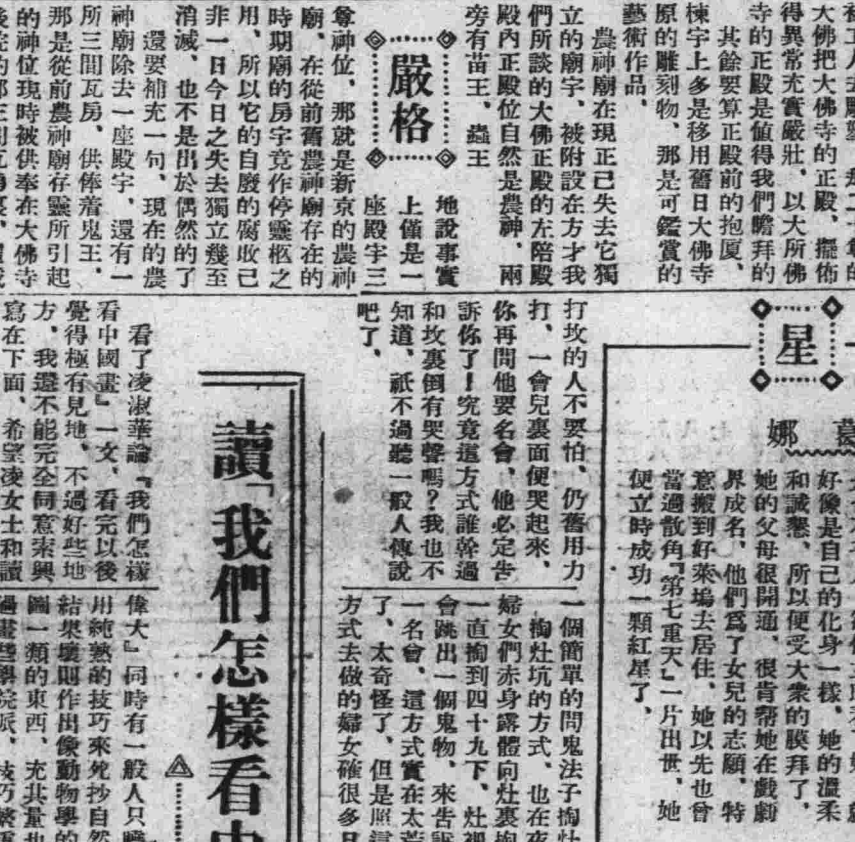 大佛把大佛寺的正殿、擺佈
得異常充實嚴壯、以大所佛
寺的正殿是値得我們瞻拜的
其餘要算正殿前的抱厦、
棟宇上多是移用舊日大佛寺
原的雕刻物、那是可鑑賞的
藝術作品、
農神廟在現正已失去它獨
立的廟宇、被附設在方才我
們所談的大佛正殿的左陪殿
殿內正殿位自然是農神、兩
旁有苗王、蟲王
嚴格
地說事實
上僅是一
座殿宇三
尊神位、那就是新京的農神
廟、在從前舊農神廟存在的
時期廟的房宇竟作停靈柩之
用、所以它的自廢的腐敗已
非一日今日之失去獨立幾至
消滅、也不是出於偶然的了
還要補充一句、現在的農
神廟除去一座殿宇、還有一
所三間瓦房、供俸着鬼王、
那是從前農神廟存靈所引起
的神位現時被供奉在大佛寺
星
葛娜
好像是自己的化身一樣、她的溫柔
和誠懇、所以便受大衆的膜拜了、
她的父母很開通、很肯幫她在戲劇
界成名、他們爲了女兒的志願、特
意搬到好萊塢去居住、她以先也曾
當過散角『第七重天』一片出世、她
便立時成功一顆紅星了、
打坟的人不要怕、仍舊用力
打、一會兒裏面便哭起來、
你再問他要名會、他必定告
訴你了！究竟這方式誰幹過
和坟裏倒有哭聲嗎？我也不
知道、祇不過聽一般人傳說
吧了、
一個簡單的問鬼法子掏灶
掏灶坑的方式、也在夜
婦女們赤身露體向灶裏掏
一直掏到四十九下、灶裡
會跳出一個鬼物、來告訴
一名會、這方式實在太荒
了、太奇怪了、但是照這
方式去做的婦女確很多日
讀「我們怎樣看中
看了凌淑華論『我們怎樣
看中國畫』一文、看完以後
覺得極有見地、不過好些地
方、我還不能完全同意索興
寫在下面、希望凌女士和讀
偉大』同時有一般人只曉
用純熟的技巧來死抄自然
結果壞則作出像動物學的
圖一類的東西、充其量也